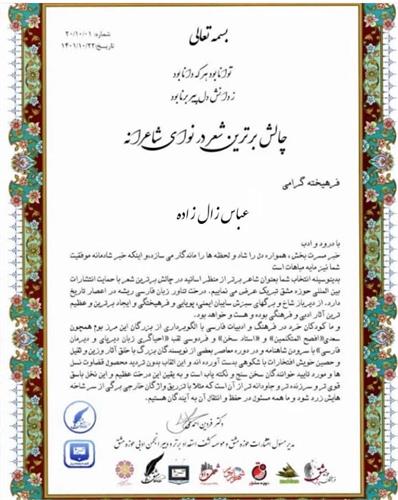 بسمه تعالی
شماره: ۲۰/۱۰/۰۱
تاریخ: ۱۴۰۱/۱۰/۲۲
توانا بود هر که دانا بود
ز دانش دل پیر برنا بود
چالش برترین شعر در نوای شاعرانه
فرهیخته گرامی
عباس زال زاده
با درود و ادب
خبر مسرت بخش، همواره دل را شاد و لحظه ها را ماندگار می سازد و اینکه خبر شادمانه موفقیت
شما نیز مایه مباهات است
بدینوسیله انتخاب شما بعنوان شاعر برتر از منظر اساتید در چالش برترین شعر با حمایت انتشارات
بین المللی حوزه مشق تبریک عرض می نماییم. درخت تناور زبان فارسی ریشه در اعصار تاریخ
دارد. از دیرباز شاخ و برگهای سبزش سایبان ایمنی، پویایی و فرهیختگی و ایجاد برترین و عظیم
ترین آثار ادبی و فرهنگی بوده و هست و خواهد بود.
و ما کودکان خرد در فرهنگ و ادبیات فارسی با الگوبرداری از بزرگان این مرز بوم همچون
سعدی«افصح المتکلمین» و «استاد سخن» و فردوسی لقب «احیاگری زبان دیرپای و دیرمان
فارسی» با سرودن شاهنامه و در دوره معاصر بعضی از نویسندگان بزرگ با خلق آثار وزین و ثقیل
و حصین خویش افتخارات با شکوهی بدست آورده اند و این القاب بدون تردید محصول قضاوت نسل
ها و مورد تایید خوانندگان سخن سنج و نکته یاب است و به یقین این درخت عظیم و این نخل باسق
قوی تر و سرزنده تر و جاودانه تر از آن است که مثلا با تزریق واژگان خارجی برگی از سر شاخه
هایش زرد شود و ما همه مسئول در حفظ و انتقال آن به آیندگان هستیم.
دکتر فردین احمدی
مدیر مسئول انتشارات حوزه مشق و موسسه کشف استعداد برتر و دبیر انجمن ادبی حوزه مشق